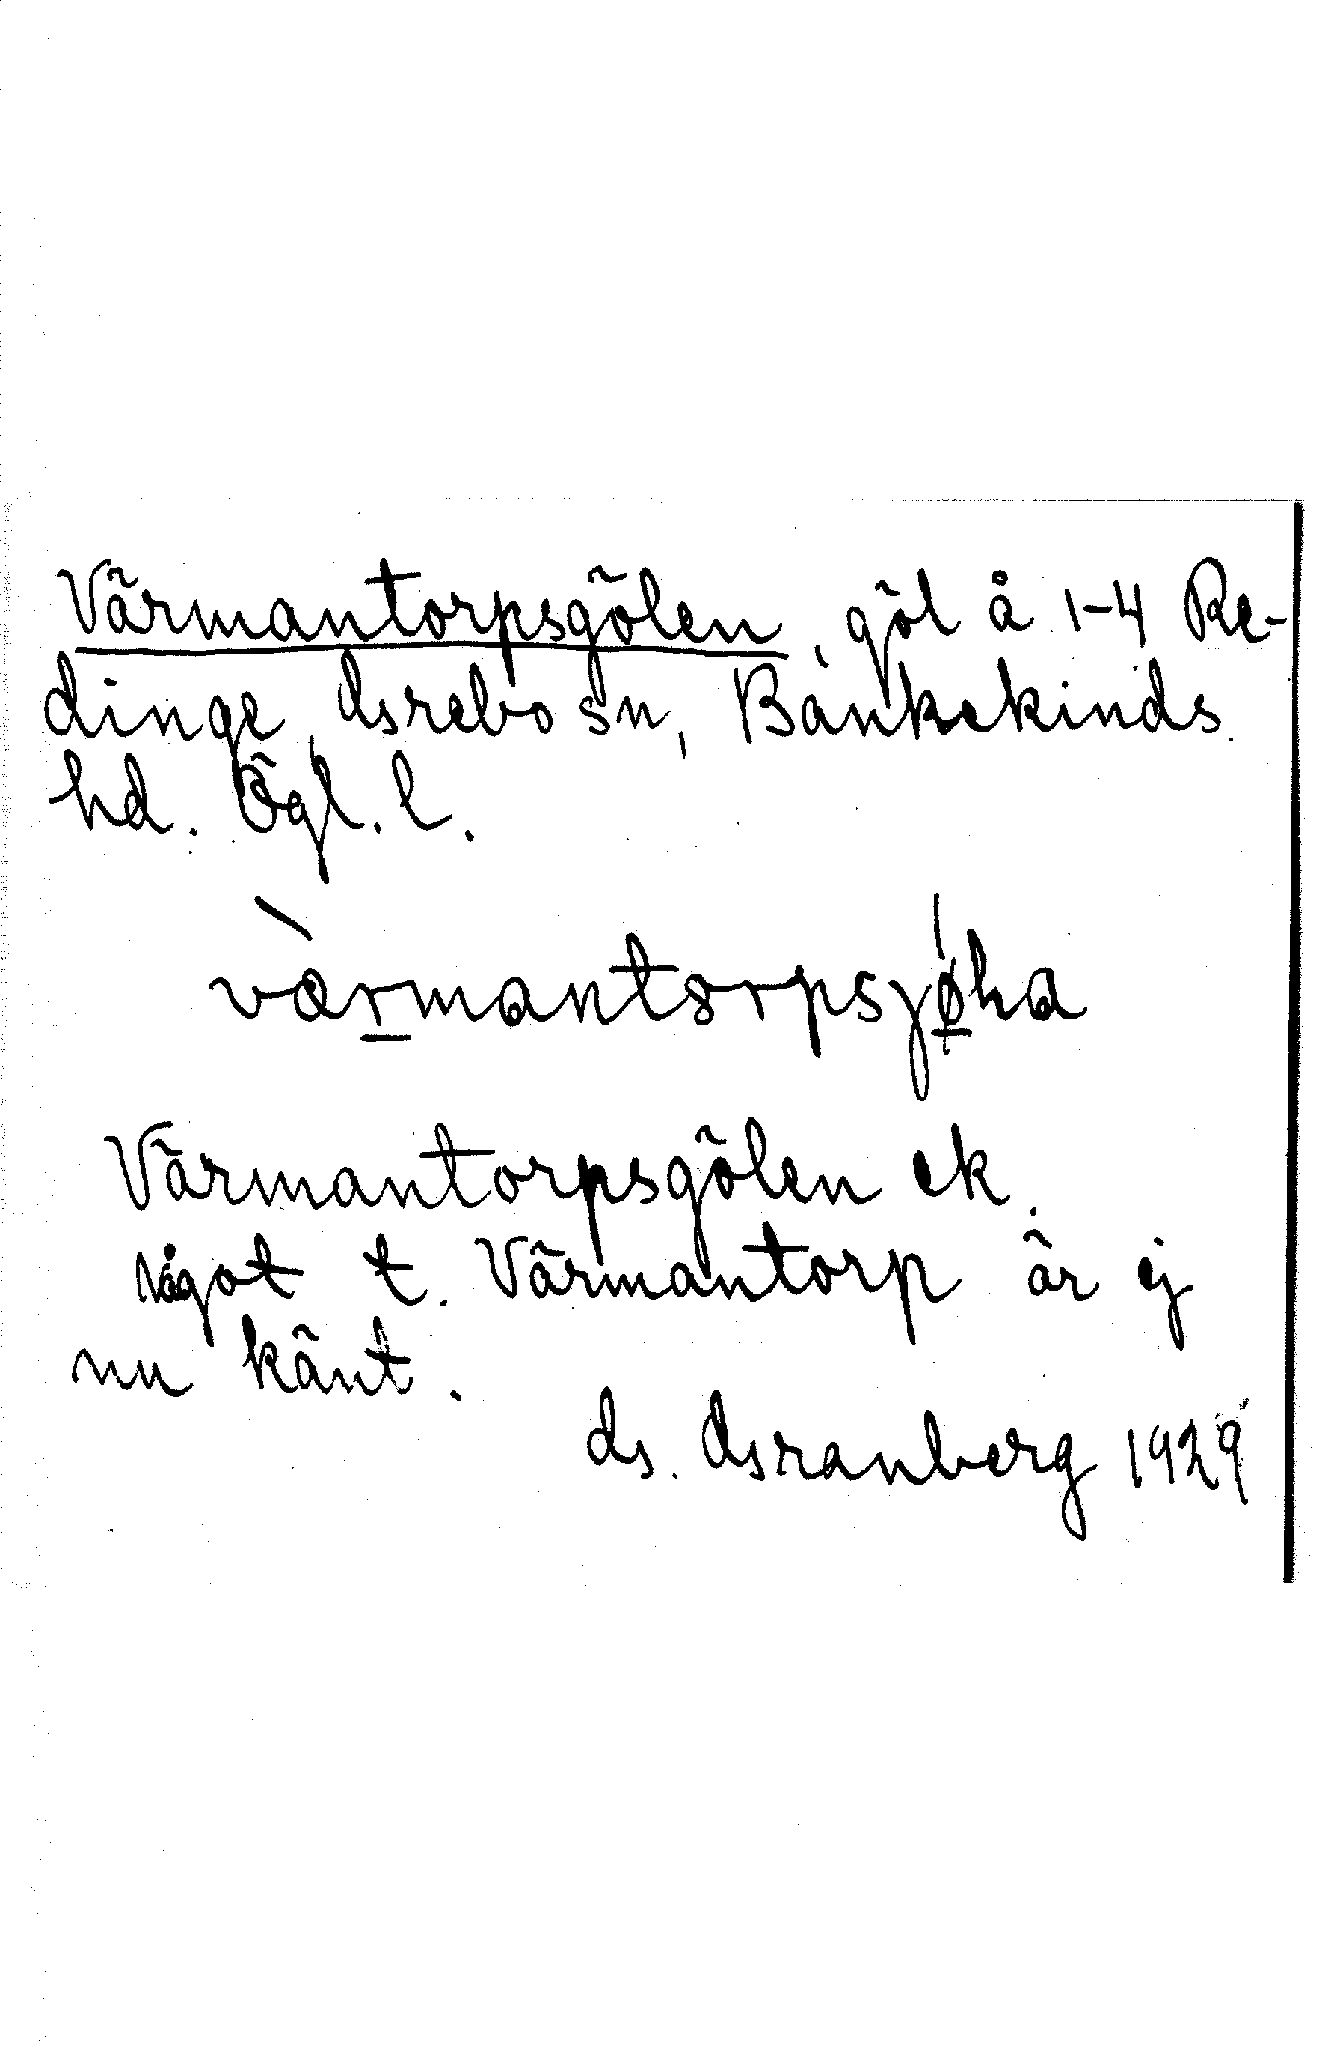 Värmantorpsgölen, göl å 1-4 Re-
dinge, Grebo sn, Bankekinds
hd. Ögl. l.
værmantorpsjøka
Värmantorpsgölen ek.
något t. Värmantorp är ej
nu känt.
G. Granberg 1929